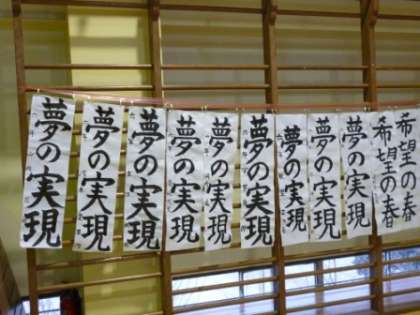 夢の実現
夢の実現
夢の実現
夢の実現
夢の実現
夢の実現
夢の実現
夢の実現
夢の実現
希望の春
希望の春